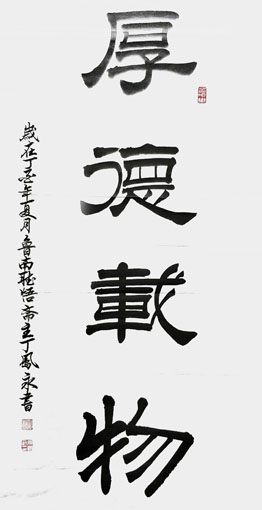 厚德載物
歲在丁亥年夏月魯南聽悟齋主丁鳳永書